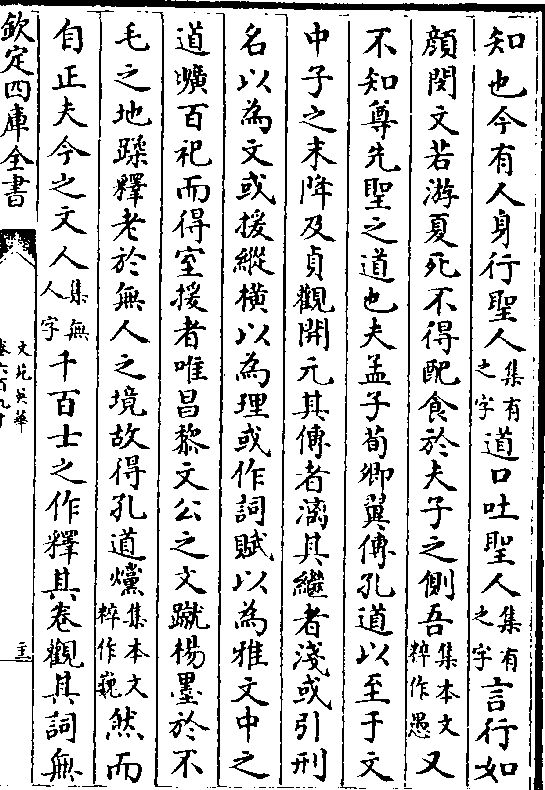 知也今有人身行聖人集有之字道口吐聖人集有之字言行如
顔閔文若游夏死不得配食於夫子之側吾集本文粹作愚又
不知尊先聖之道也夫孟子荀卿翼傳孔道以至于文
中子之末降及貞觀開元其傳者漓其繼者淺或引刑
名以為文或援縱横以為理或作詞賦以為雅文中之
道曠百祀而得室援者唯昌黎文公之文蹴楊墨於不
毛之地蹂釋老於無人之境故得孔道爣集本文粹作巍然而
自正夫今之文人集無人字千百士之作釋其卷觀其詞無
欽定四庫全書
文苑英華
卷六百九十